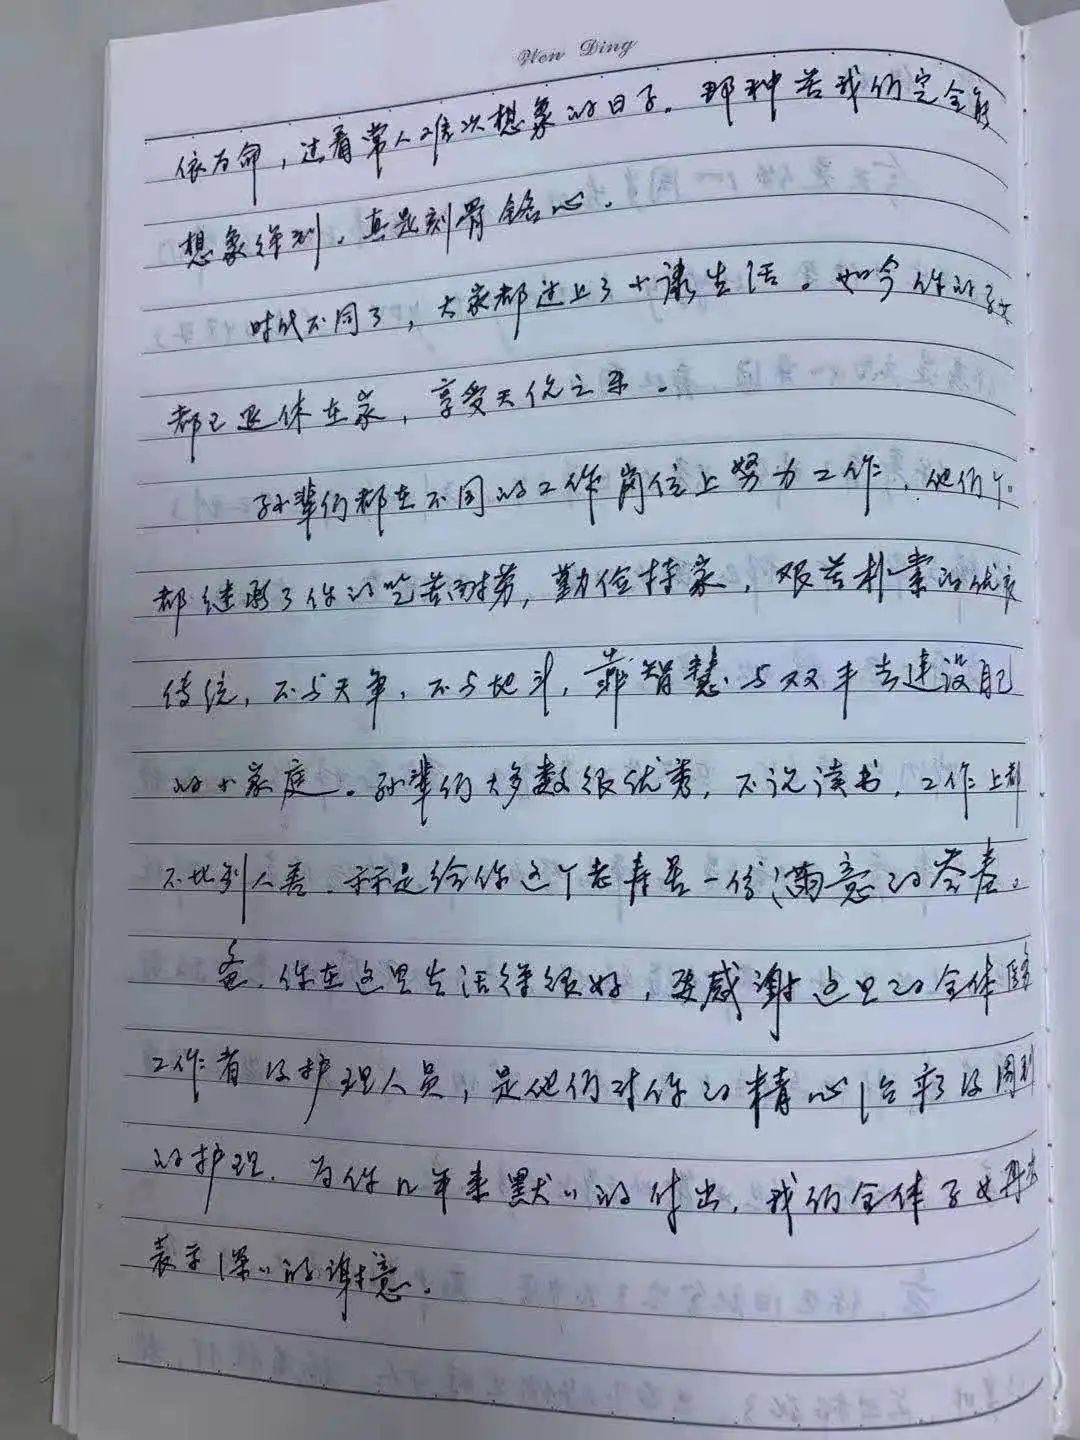 Wen Ding
依为命，过着常人难以想象的日子。那种苦我们完全能
想象得到，真是刻骨铭心。
时代不同了，大家都过上了小康生活。如今你的子女
都已退休在家，享受天伦之乐。
孙辈们都在不同的工作岗位上努力工作，他们个
都继承了你的吃苦耐劳，勤俭持家，艰苦朴素的优良
传统，不与天争，不与地斗，靠智慧与双手去建设自己
的小家庭。孙辈们大多数很优秀，不说读书，工作上都
不比别人差，算是给你这个老寿星一份满意的答卷。
爸，你在这里生活得很好，要感谢这里的全体医务
工作者及护理人员，是他们对你的精心治疗及周到
的护理，为你几年来默〃的付出，我们全体子女再次
表示深〃的谢意。